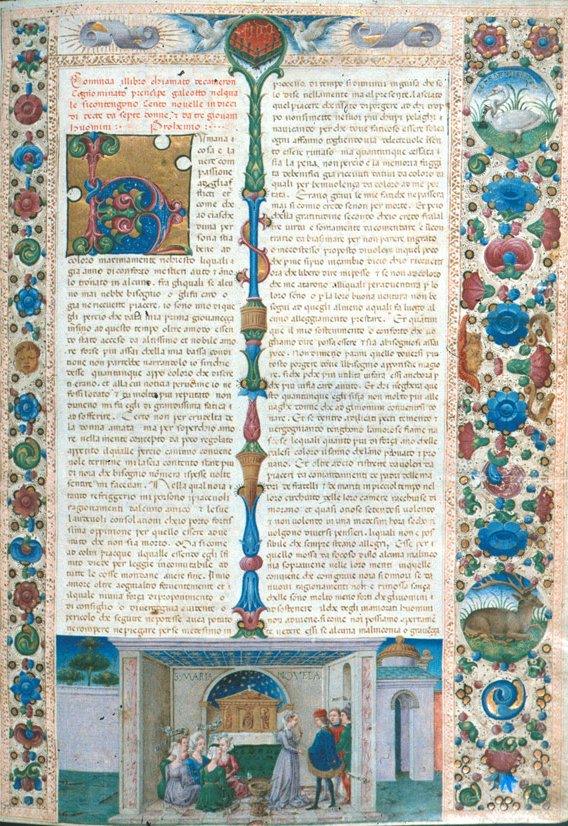 Comincia illibro chiamato decameron
Cognominato prencipe galeotto nelqua
le sicontengono Cento nouelle in dieci
di decte da septe donne, & da tre giouani
huomini · Prohemio
H Vmana e
cosa e la
uere com
passione
ad gliaf
flicti et
come che
ad ciasche
duna per
sona stia
bene ad
coloro maximamente e richiesto liquali
gia anno di conforto mestieri auto & anno
lo trouato in alcuno. fra gliquali se alcu
no mai nebbe bisogno o glifu caro o
gia ne riceuette piacere. io sono uno di que
gli percio che dalla mia prima giouaneza
infino ad questo tempo oltre amodo essen
do stato acceso da altissimo et nobile amo
re forse piu assai della mia bassa condi
tione non parebbe narrandolo io
desse quantunque appo coloro che discreti
erano. et alla cui notitia peruenne io ne
fossi lodato & da molto piu reputato non
dimeno mi fu egli di grandissima fatica ad
sofferire. Certo non per crudelta de
la donna amata ma per soperchio amo
re nella mente concepto da poco regolato
appetito ilquale percio
nole termine mi lasciaua contento stare piu
di noia che bisogno nomera spesse uolte
sentire mi faceua. Nella qual noia
tanto refrigerio mi porsono ipiaceuoli
ragionamenti dalcuno amico & le sue
laudeuoli consolationi chio porto fortis
sima oppinione per quelle essere adue
nuto che non sia morto. Ma sicome
ad colui piacque ilquale essendo egli infi
nito diede per leggie incomutabile ad
tutte le cose mondane auere fine. Il mio
amore oltre adognaltro feruentemente et
ilquale niuna forza di proponimento o
di consiglio o di uergogna euidente o
pericolo che seguire ne potesse auea potuto
ne rompere ne piegare per se medesimo in
processo di tempo si diminui inguisa che so
lo dise nellamente ma al presente lasciato
quel piacere che usato di porgere ad chi trop
po non si mette ne suoi piu cupi pelaghi
nauicando per che doue faticoso essere solea
ogni affanno togliendo uia dilecteuole sen
to essere rimaso ma quantunque cessata
sia la pena. non percio e la memoria fuggi
ta de benificii gia riceuuti datimi da coloro ad
quali per beniuolenza da coloro ad me por
tata. Erano graui le mie fatiche ne passera
mai si come credo senon per morte. Et pero
della gratitudine secondo chio credo fralal
tre uirtu e sommamente da comendare & il con
trario da biasimare per non parere ingrato
o meco stesso proposto di uolere in quel poco
che per me si puo in cambio di cio chio riceuetti
ora che libero dire mi posso & se non ad coloro
che me atarono alliquali peraduentura per lo
loro seno o per la loro buona uentura non bi
sogni ad quegli almeno aquali fa luogo al
cuno alleggiamento prestare. Et quantun
que il mio sostenimento o conforto che uo
gliamo dire possa essere & sia abisognosi assai
poco. Non dimeno parmi quello douersi piu
tosto porgere doue il bisogno apparisce magio
re. si che per che piu utilita ui fara si ancora
per che piu ui fia caro auuto. Et chi neghera que
sto quantunque egli si sia non molto piu alle
uaghe donne che ad gli uomini conuenirsi do
nare. Et se dentro adilicati pecti temendo &
uergognando tengono lamorose fiame na
scose lequali quanto piu di forza anno delle
palesi coloro il sanno che lanno prouato & pro
uano. Et oltre accio ristrecte da uoleri da
piaceri da comandamenti de padri delle ma
dri de fratelli & de mariti il piu del tempo nel
loro circhuito delle loro camere racchiuse di
morano. et quasi oziose sedendosi uolendo
& non uolendo in una medesima hora seco ri
uolgono diuersi pensieri. liquali non e pos
sibile che sempre sieno allegri. Et se per
quello mossa da focoso disio alcuna malinco
nia soprauiene nelle loro menti in quelle
conuiene che con graue noia si dimori se da
nuoui ragionamenti non e rimossa sanza
chelle sono molto meno forti che gli uomini
ad sostenere ilche degli inamorati huomini
non aduiene si come noi possiamo apertamen
te uedere essi se alcuna malinconia o grauezza
S · MARIA NOVELA